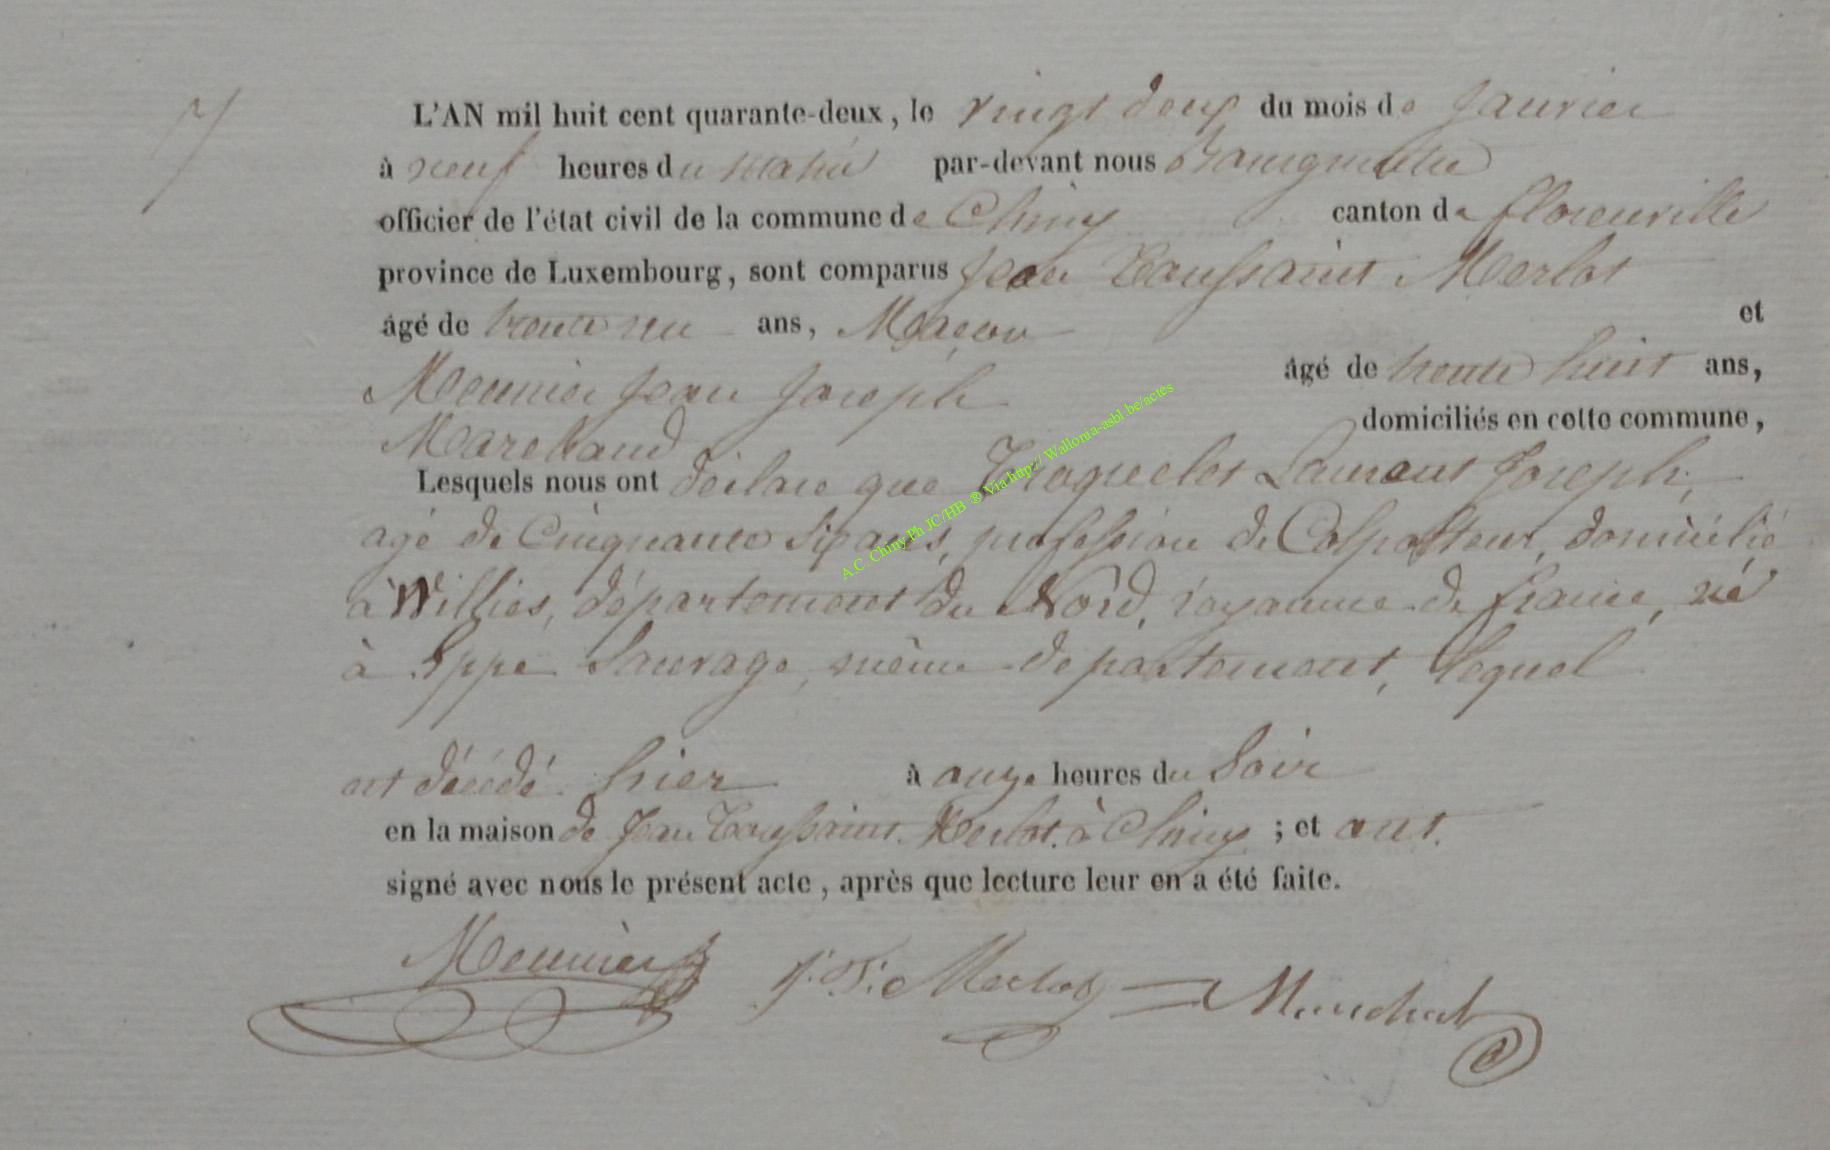 7
L'AN mil huit cent quarante-deux, le vingt deux du mois de Janvier
à neuf heures du matin par-devant nous Bourgmestre
officier de l'état civil de la commune de Chiny canton de florenville
province de Luxembourg, sont comparus Jean Toussaint Merlot
âgé de trente un ans, Maçon et
Meunier Jean Joseph âgé de trente huit ans,
Marchand domiciliés en cette commune,
Lesquels nous ont déclaré que Laurent Joseph,
agé de Cinquante six ans, profession de Colporteur, domicilié
à Willies, département du Nord, royaume de france, né
à Eppe Sauvage, même departement, lequel
est décédé hier à onze heures du Soir
en la maison de Jean Toussaint Merlot à Chiny ; et ont
signé avec nous le présent acte, après que lecture leur en a été faite.
Meunier J. T. Merlot
A.C. Chiny Ph JC/HB ® Via http://Wallonia-asbl.be/actes